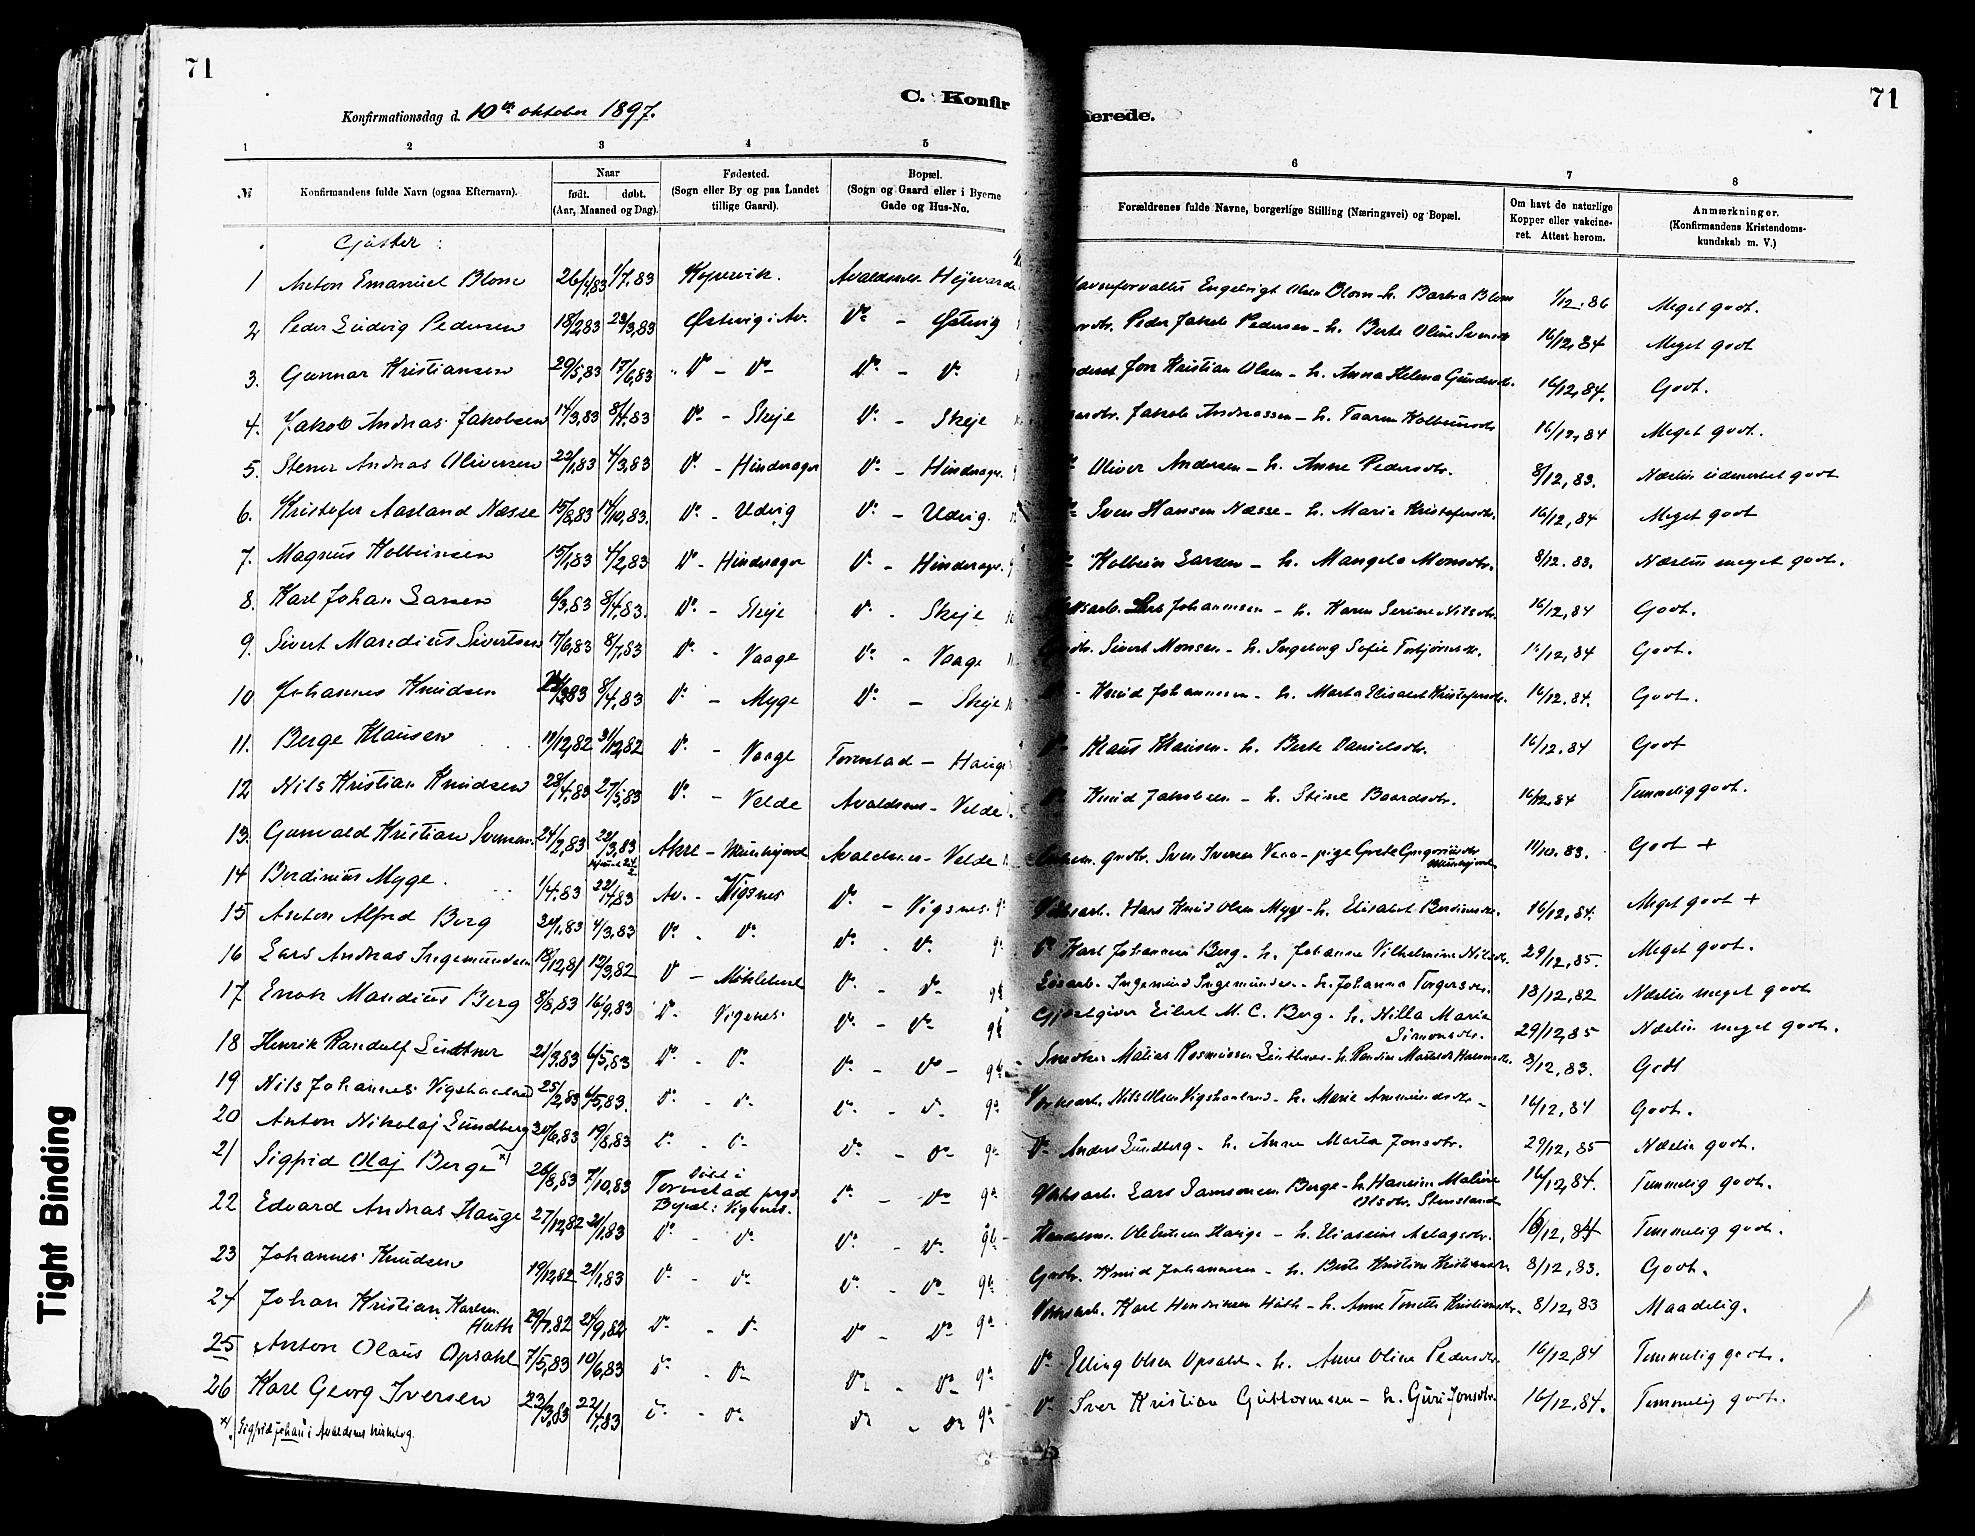 71
71
Konfirmationsdag d. 10de oktober 1897.
C. Konfir
erede.
1 2 3 4 5 6 7 8
№
Konfirmandens fulde Navn (ogsaa Efternavn).
Naar
født. døbt.
(Aar, Maaned og Dag).
Fødested.
(Sogn eller By og paa Landet
tillige Gaard).
Bopæl.
(Sogn og Gaard eller i Byerne
Gade og Hus-No.
Forældrenes fulde Navne, borgerlige Stilling (Næringsvei) og Bopæl.
Om havt de naturlige
Kopper eller vakcine-
ret. Attest herom.
Anmærkninger.
(Konfirmandens Kristendoms-
kundskab m. V.)
Gutter:
1 Anton Emanuel Blom 26/4,83 1/7,83 Kopervik. Avaldsnes Engebrigt Olsen Blom - h. Barbra Blom 1/12.86 Meget godt.
2 Peder Ludvig Pedersen 18/2,83 23/3,83 Østevig i Av. Do - Østvig Peder Jakob Pedersen - h. Berte Oline 16/12,84 Meget godt
3. Gunnar Kristiansen 29/5,83 17/6,83 Do - Do Do - Do Jon Kristian Olsen - h. Anna Helena 16/12,84. Godt.
4. Jakob Andreas Jakobsen 14/3,83 8/4,83 Do - Skeje Do - Skeje Jakob Andreassen - h. Taaren Kolbeinsdtr. 16/12,84 Meget godt.
5. Stener Andreas Oliversen 22/1,83 4/3,83 Do - Hinderager Do - Hinderager. Oliver Andersen - h. Anne Pedersdtr. 8/12,83. Næsten udmerket godt
6. Kristofer Aarland Næsse 15/8,83 14/10,83. Do - Udvig Do - Udvig. Sven Hansen Næsse - h. Marie Kristofersdtr. 16/12,84 Meget godt
7. Magnus Kolbeinsen 15/1,83 4/2,83 Do - Hinderager Do - Hinderager. Kolbein Larsen - h. Mangela Monsdtr. 8/12.83. Næsten meget godt.
8. Karl Johan Larsen 6/3,83 8/4,83. Do - Skeje Do - Skeje Lars Johannesen - h. Karen Serine Nilsdtr. 16/12,84 Godt.
9. Sivert Mandius Sivertsen 17/6,83 8/7,83 Do - Vaage Do - Vaage Sivert Monsen - h. Ingeborg Sofie Torbjørnsdtr. 16/12,84 Godt.
10 Johannes Knudsen 8/4,83 Do - Myge Do - Skeje Knud Johannesen - h. Marta Elisabet Kristofersdtr. 16/12.84. Godt.
11. Berge Klausen 19/12,82 31/12,82 Do - Vaage Torvestad - Hauge Klaus Klausen - h. Berte Danielsdtr. 16/12.84 Godt
12 Nils Kristian Knudsen 28/4,83 27/5,83 Do - Velde Avaldsnes - Velde Knud Jakobsen - h. Stine Baardsdtr. 16/12.84 Temmelig godt.
13. Gunvald Kristian Svensen. 24/2,83 23/3,83 Akre - Munkejorde Avaldsnes - Velde Sven Iversen - pige Grete Gregoriusdtr Munkejorde 11/10.83. Godt +
14 Berdinius Myge. 1/4.83 22/4,83 Av. - Vigsnes Do - Vigsnes. Hans Knud Olsen Myge - h. Elisabet Berdinusdtr. 16/12,84. Meget godt +
15 Anton Alfred Berg 20/1,83 4/3,83 Do - Do Do - Do Do Karl Johannesen Berg - h. Johanne Vilhelmine Nilsdtr. 29/12,85. Meget godt.
16 Lars Andreas Ingemundsen 18/12,81 12/3,82 Do - Do - Do Løsarb. Ingemund Ingemundsen - h. Johanna Torgersdtr. 18/12,82 Næsten meget godt
17 Enok Mandius Berg 8/8,83 16/9,83 Do - Vigsnes Do - Do Gjæstgiver Eilert M. C. Berg - h. Nilla Maria Simonsdtr. 29/12,85 Næsten meget godt.
18 Henrik Randulf Lindtner 21/3.83 6/5,83 Do - Do Do - Do Matias Rasmussen Lindtner 8/12,83. Godt
19 Nils Johannes Vigshaaland 25/2,83 6/5,83. Do - Do Do - Do Nils Olsen Vigshaaland - h. Marie Ammundsdtr 16/12,84 Godt.
20 Anton Nikolaj Lundberg 30/6,83 19/8,83 Do - Do Do - Do Do Anders Lundberg - h. Anne Marta Jonsdtr. 29/12,85 Næsten godt.
21 Sigfrid Olaj Berge x) 26/8,83 7/10,83 Døbt i Torvestad prgd. Bopæl: Vigsnes. Do - Do Lars Samsonsen Berge - h. Malene Olsdtr. Stensland 16/12,84. Temmelig godt.
22 Edvard Andreas Hauge 27/12,82 21/1,83 Do - Do Do - Do Handelsm. Ole Hauge - h. Aslagsdtr. 16/12,84 Temmelig godt.
23 Johannes Knudsen 19/12,82 21/1,83 Do - Do Do - Do Gaardbr. Knud Johannesen - h. Berte Kristine Kristiansdtr. 8/12,83. Godt.
24 Johan Kristian Karlsen Huth 29/7,82 24/9,82 Do - Do Do - Do Karl Hendriksen Huth - h. Anne Tonette Kristiansdtr. 8/12,83 Maadelig.
25 Anton Olaus Opsahl 7/5,83 10/6,83 Do - Do Do - Do Do Elling Olsen Opsahl - h. Anne Oline Pedersdtr. 16/12,84 Temmelig godt.
26 Karl Georg Iversen 23/3,83 22/4,83 Do - Do Do - Do Do Iver Kristian Guttormsen - h. Guri Jonsdtr. 16/12,84. Temmelig godt.
x) Sigfrid Johan i Avaldsnes kirkebog.
Tight Binding